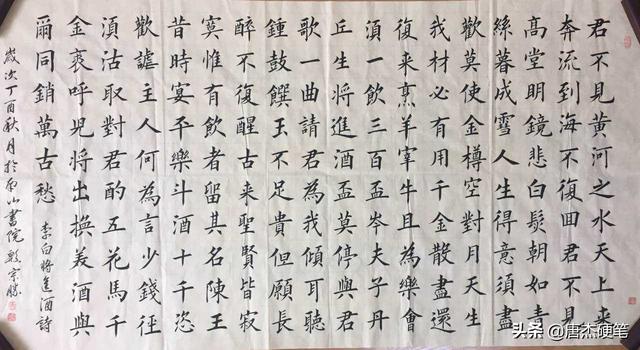 君不見黄河之水天上来
奔流到海不復回君不見
高堂明鏡悲白髮朝如青
絲暮成雪人生得意須盡
歡莫使金樽空對月天生
我材必有用千金散盡還
復来烹羊宰牛且為樂會
須一飲三百盃岑夫子丹
丘生将進酒盃莫停與君
歌一曲請君為我傾耳聽
鍾鼓饌玉不足貴但願長
醉不復醒古来聖賢皆寂
寞惟有飲者留其名陳王
昔時宴平樂斗酒十千恣
歡謔主人何為言少錢徑
須沽取對君酌五花馬千
金裘呼兒将出換美酒與
爾同銷萬古愁 李白将進酒詩
歲次丁酉秋月於南山書院 宗勝
头条 @唐杰硬笔